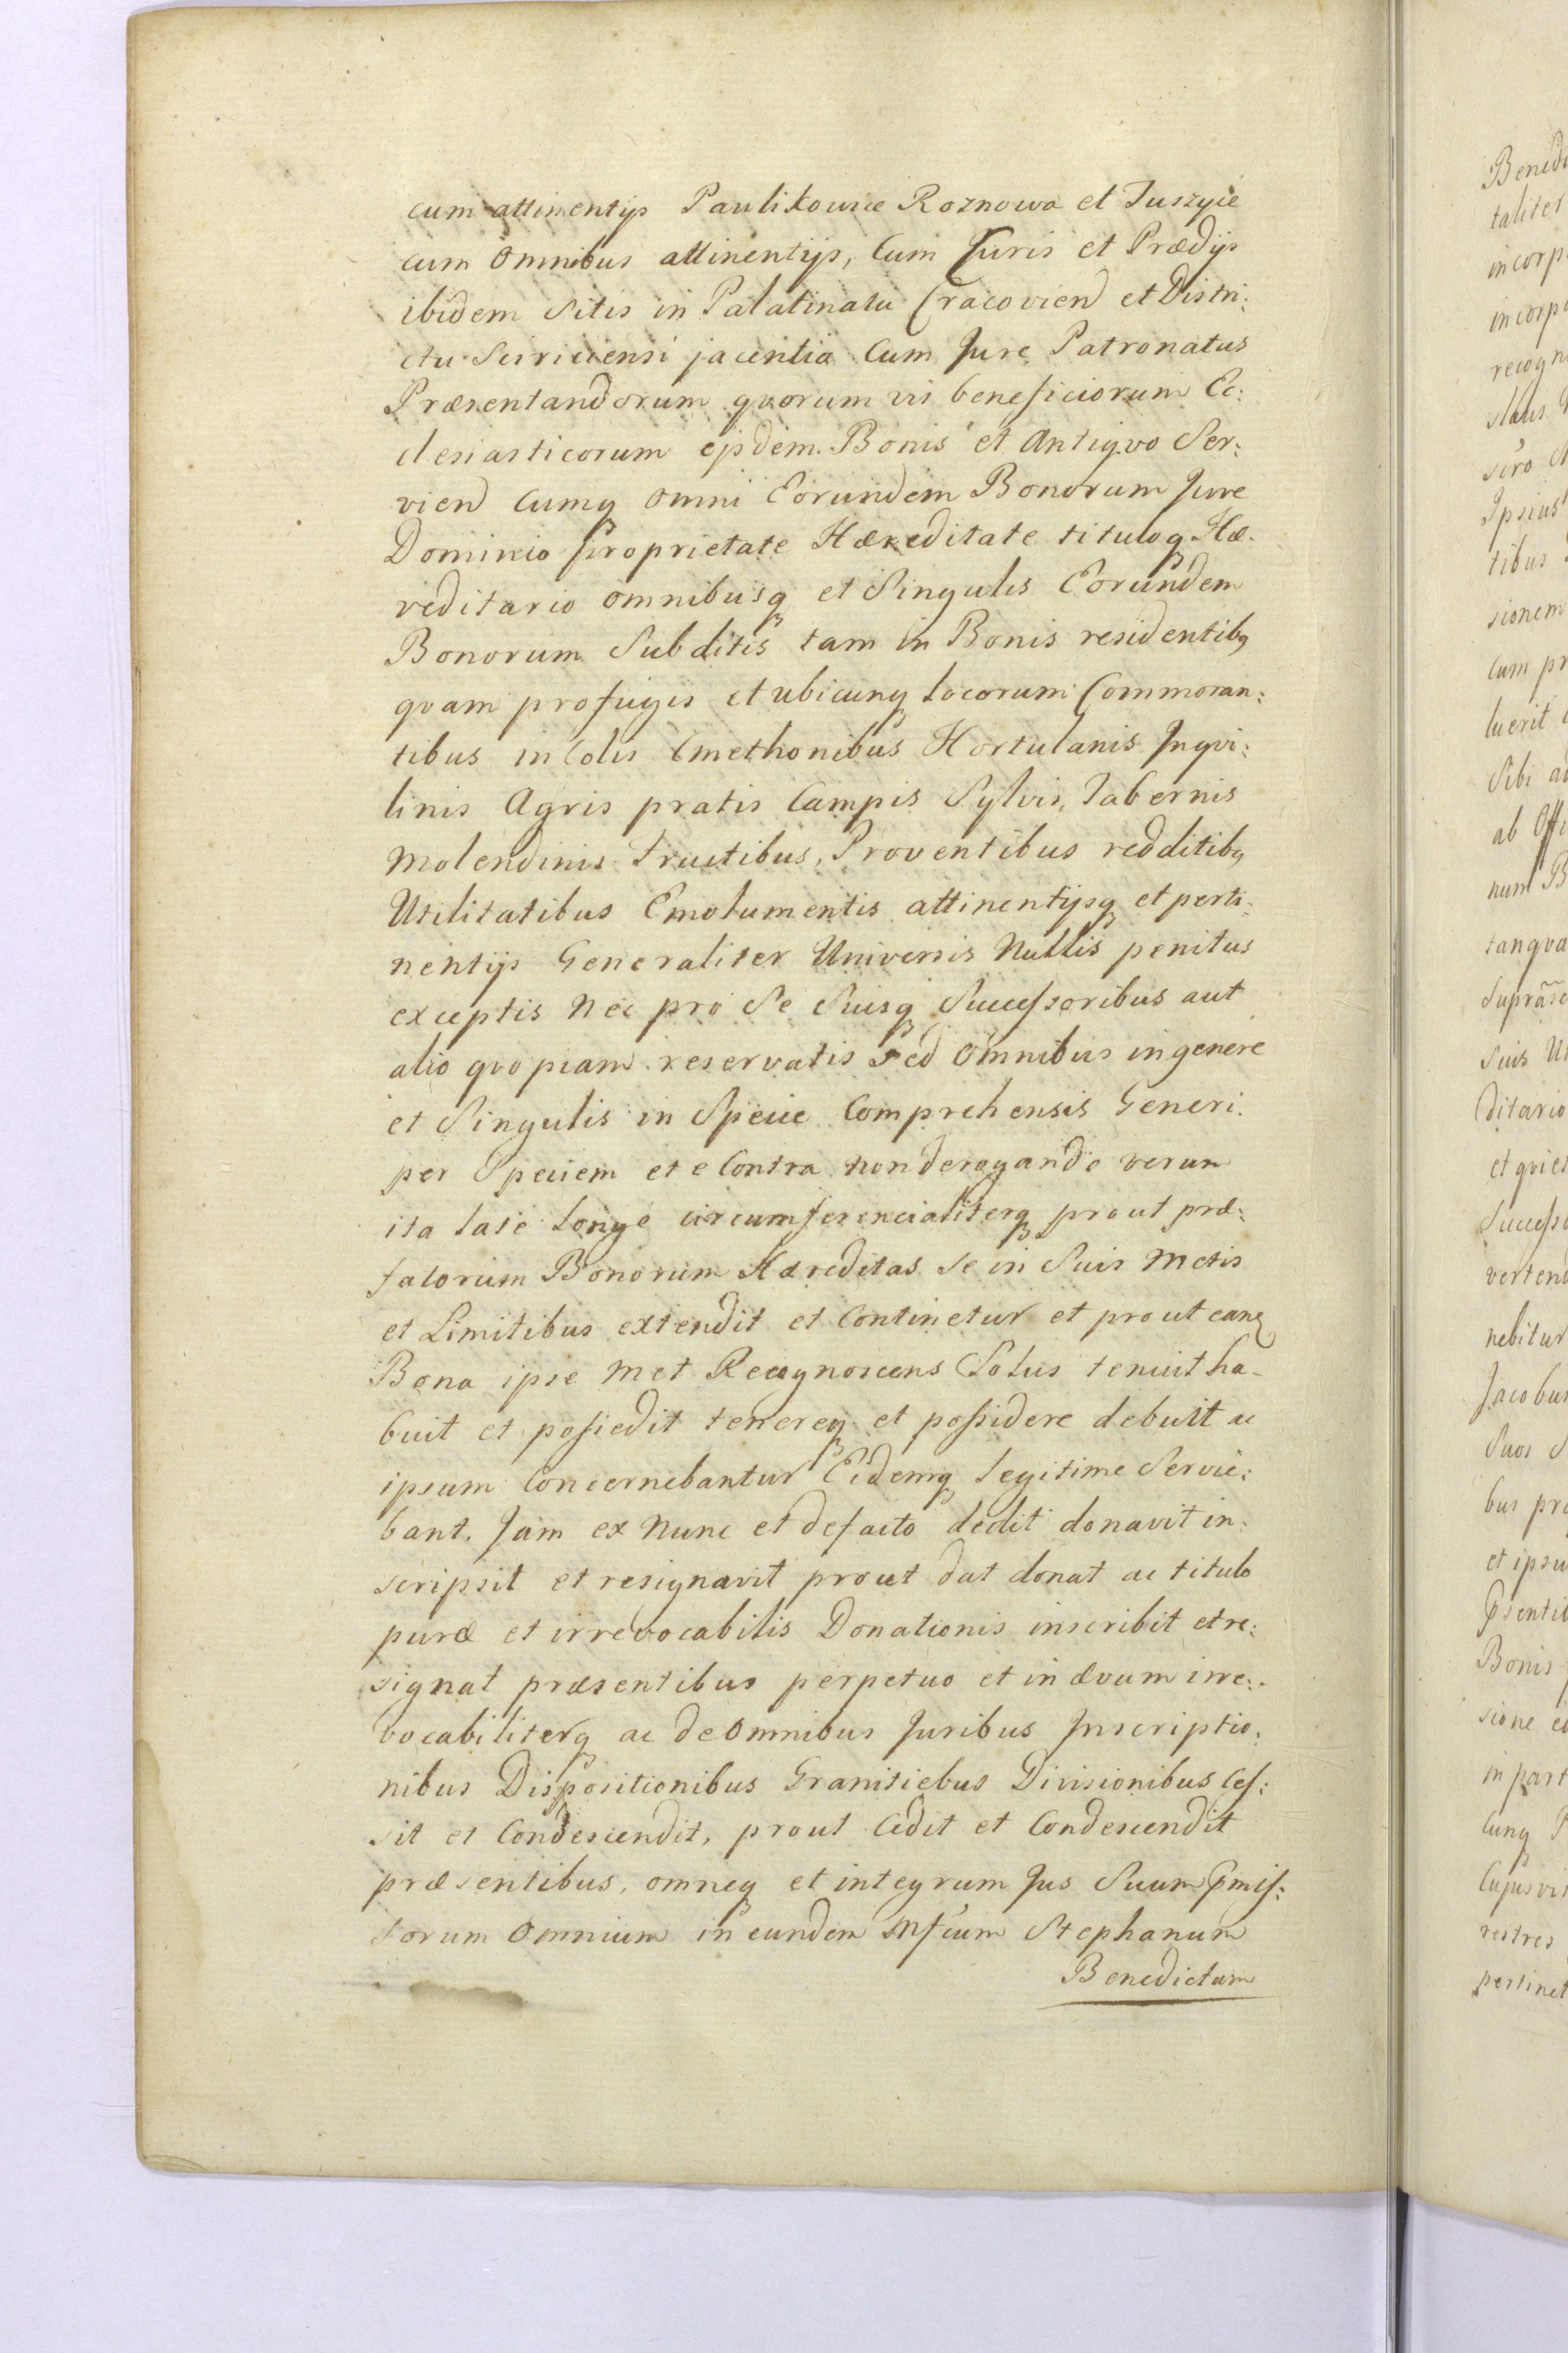 cum attinentijs Paulikowice Roznowa et Tuszyie
cum Omnibus attinentijs, Cum Juris et Prædijs
ibidem Sitis in Palatinatu Cracovien et Distri:
ctu Sciricensi jacentia Cum Jure Patronatus
Præsentandorum quorum vis beneficiorum Ec:
clesiasticorum ejsdem Bonis et Antiqvo Ser:
vien Cumq Omni Eorundem Bonorum Jure
Dominio proprietate Hæreditate tituloq Hæ-
reditario omnibusq et Singulis Eorundem
Bonorum Subditis tam in Bonis residentibq
qvam profugis et ubicunq locorum Commoran:
tibus incolis Cmethonibus Hortulanis Inqvi:
linis Agris pratis Campis Sylvis, Tabernis
Molendinis fructibus, Proventibus redditibq
Utilitatibus Emolumentis attinentijsq et perti:
nentijs Generaliter Universis Nullis penitus
exceptis Nec pro Se Suisq Successoribus aut
alio qvopiam reservatis Sed Omnibus in genere
et Singulis in Specie Comprehensis Generi
per Speciem et e Contra non derogando verum
ita late longe circumferencialiterq prout præ:
fatorum Bonorum Hæreditas Se in Suis Metis
et Limitibus extendit et Continetur et prout eanq
Bona ipse Met Recognoscens Solus tenuit ha-
buit et possedit tenereq et possidere debuit ac
ipsum Concernebantur Eidemq legitime Servie:
bant. Jam ex Nunc et defacto dedit donavit in:
scripsit et resignavit prout dat donat ac titulo
puræ et irrevocabilis Donationis inscribit et re:
signat præsentibus perpetuo et in ævum irre:
vocabiliterq ac de Omnibus Juribus Inscriptio:
nibus Dispositionibus Granitiebus Divisionibus Ces:
sit et Condescendit, prout Cedit et Condescendit
præsentibus, omneq et integrum Jus Suum Pmis:
sorum Omnium in eundem Mfcum Stephanum
Benedictum
Bened
taliter
incorp
incorp
recogn
slaus
sero
Ipsius
tibus
sionem
Cum pr
luerit
Sibi ad
ab Offi
num B
tanqva
Supra
Suis Un
ditario
et qviet
Successo
vertend
nebitur
Jacobus
Suos S
bus pro
et ipsu
Psentib
Bonis
sione
in part
Cunq P
Cujusvis
restres
pertinet